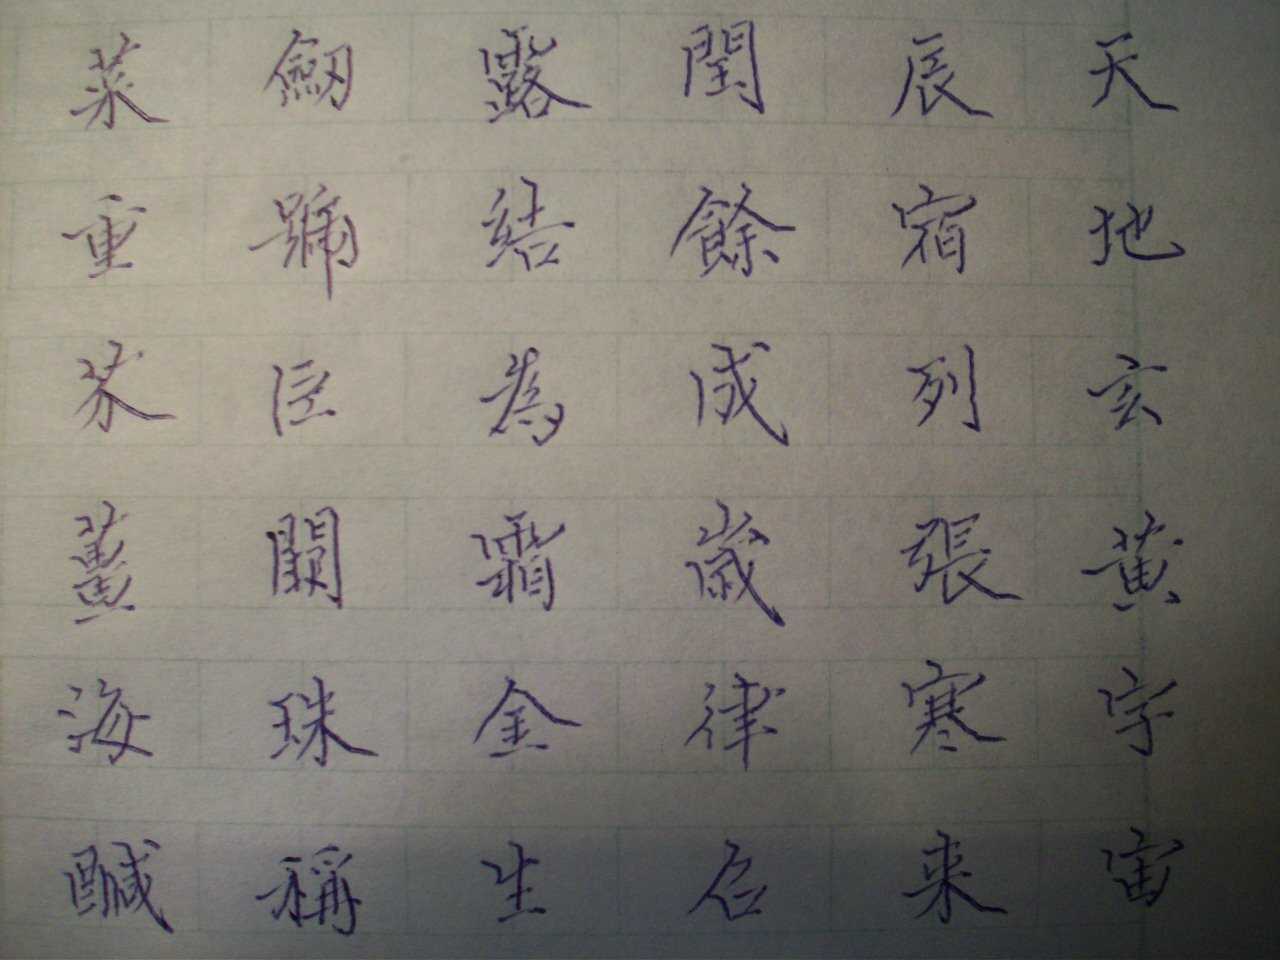 天地玄黄宇宙
辰宿列張寒来
閏餘成歲律召
露結為霜金生
劒號臣闕珠稱
菜重芥薑海醎